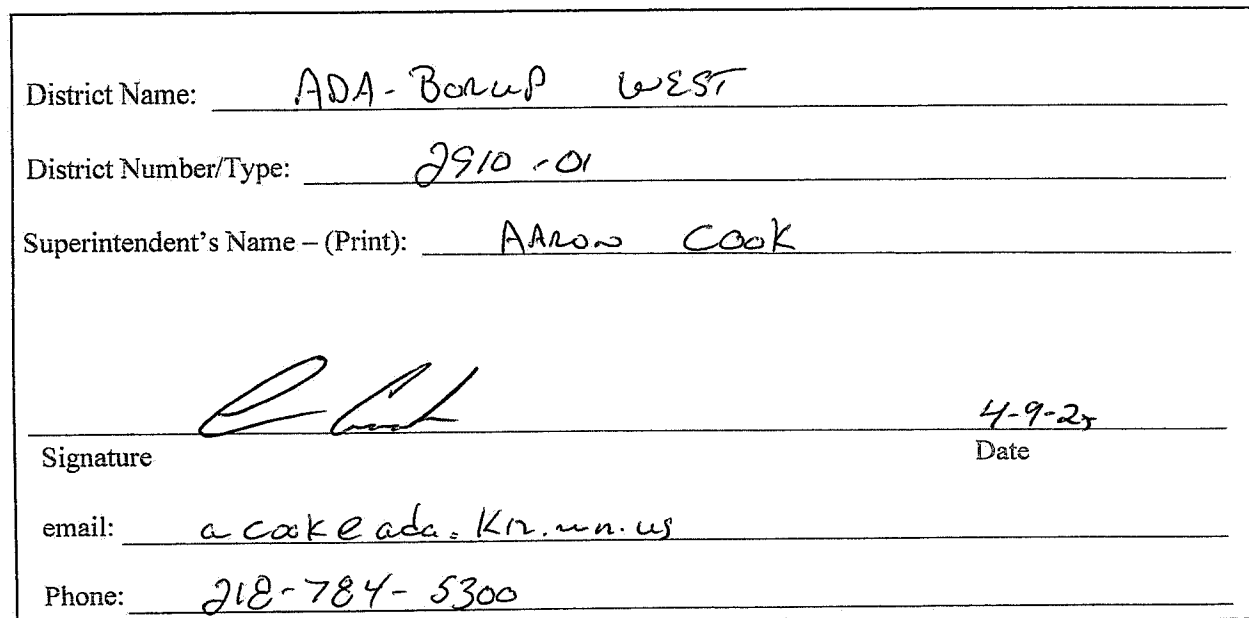 District Name: ADA-Borup WEST
District Number/Type: 2910-01
Superintendent's Name – (Print): AAron Cook
4-9-25
Signature Date
email: acook@ada.k12.mn.us
Phone: 218-784-5300